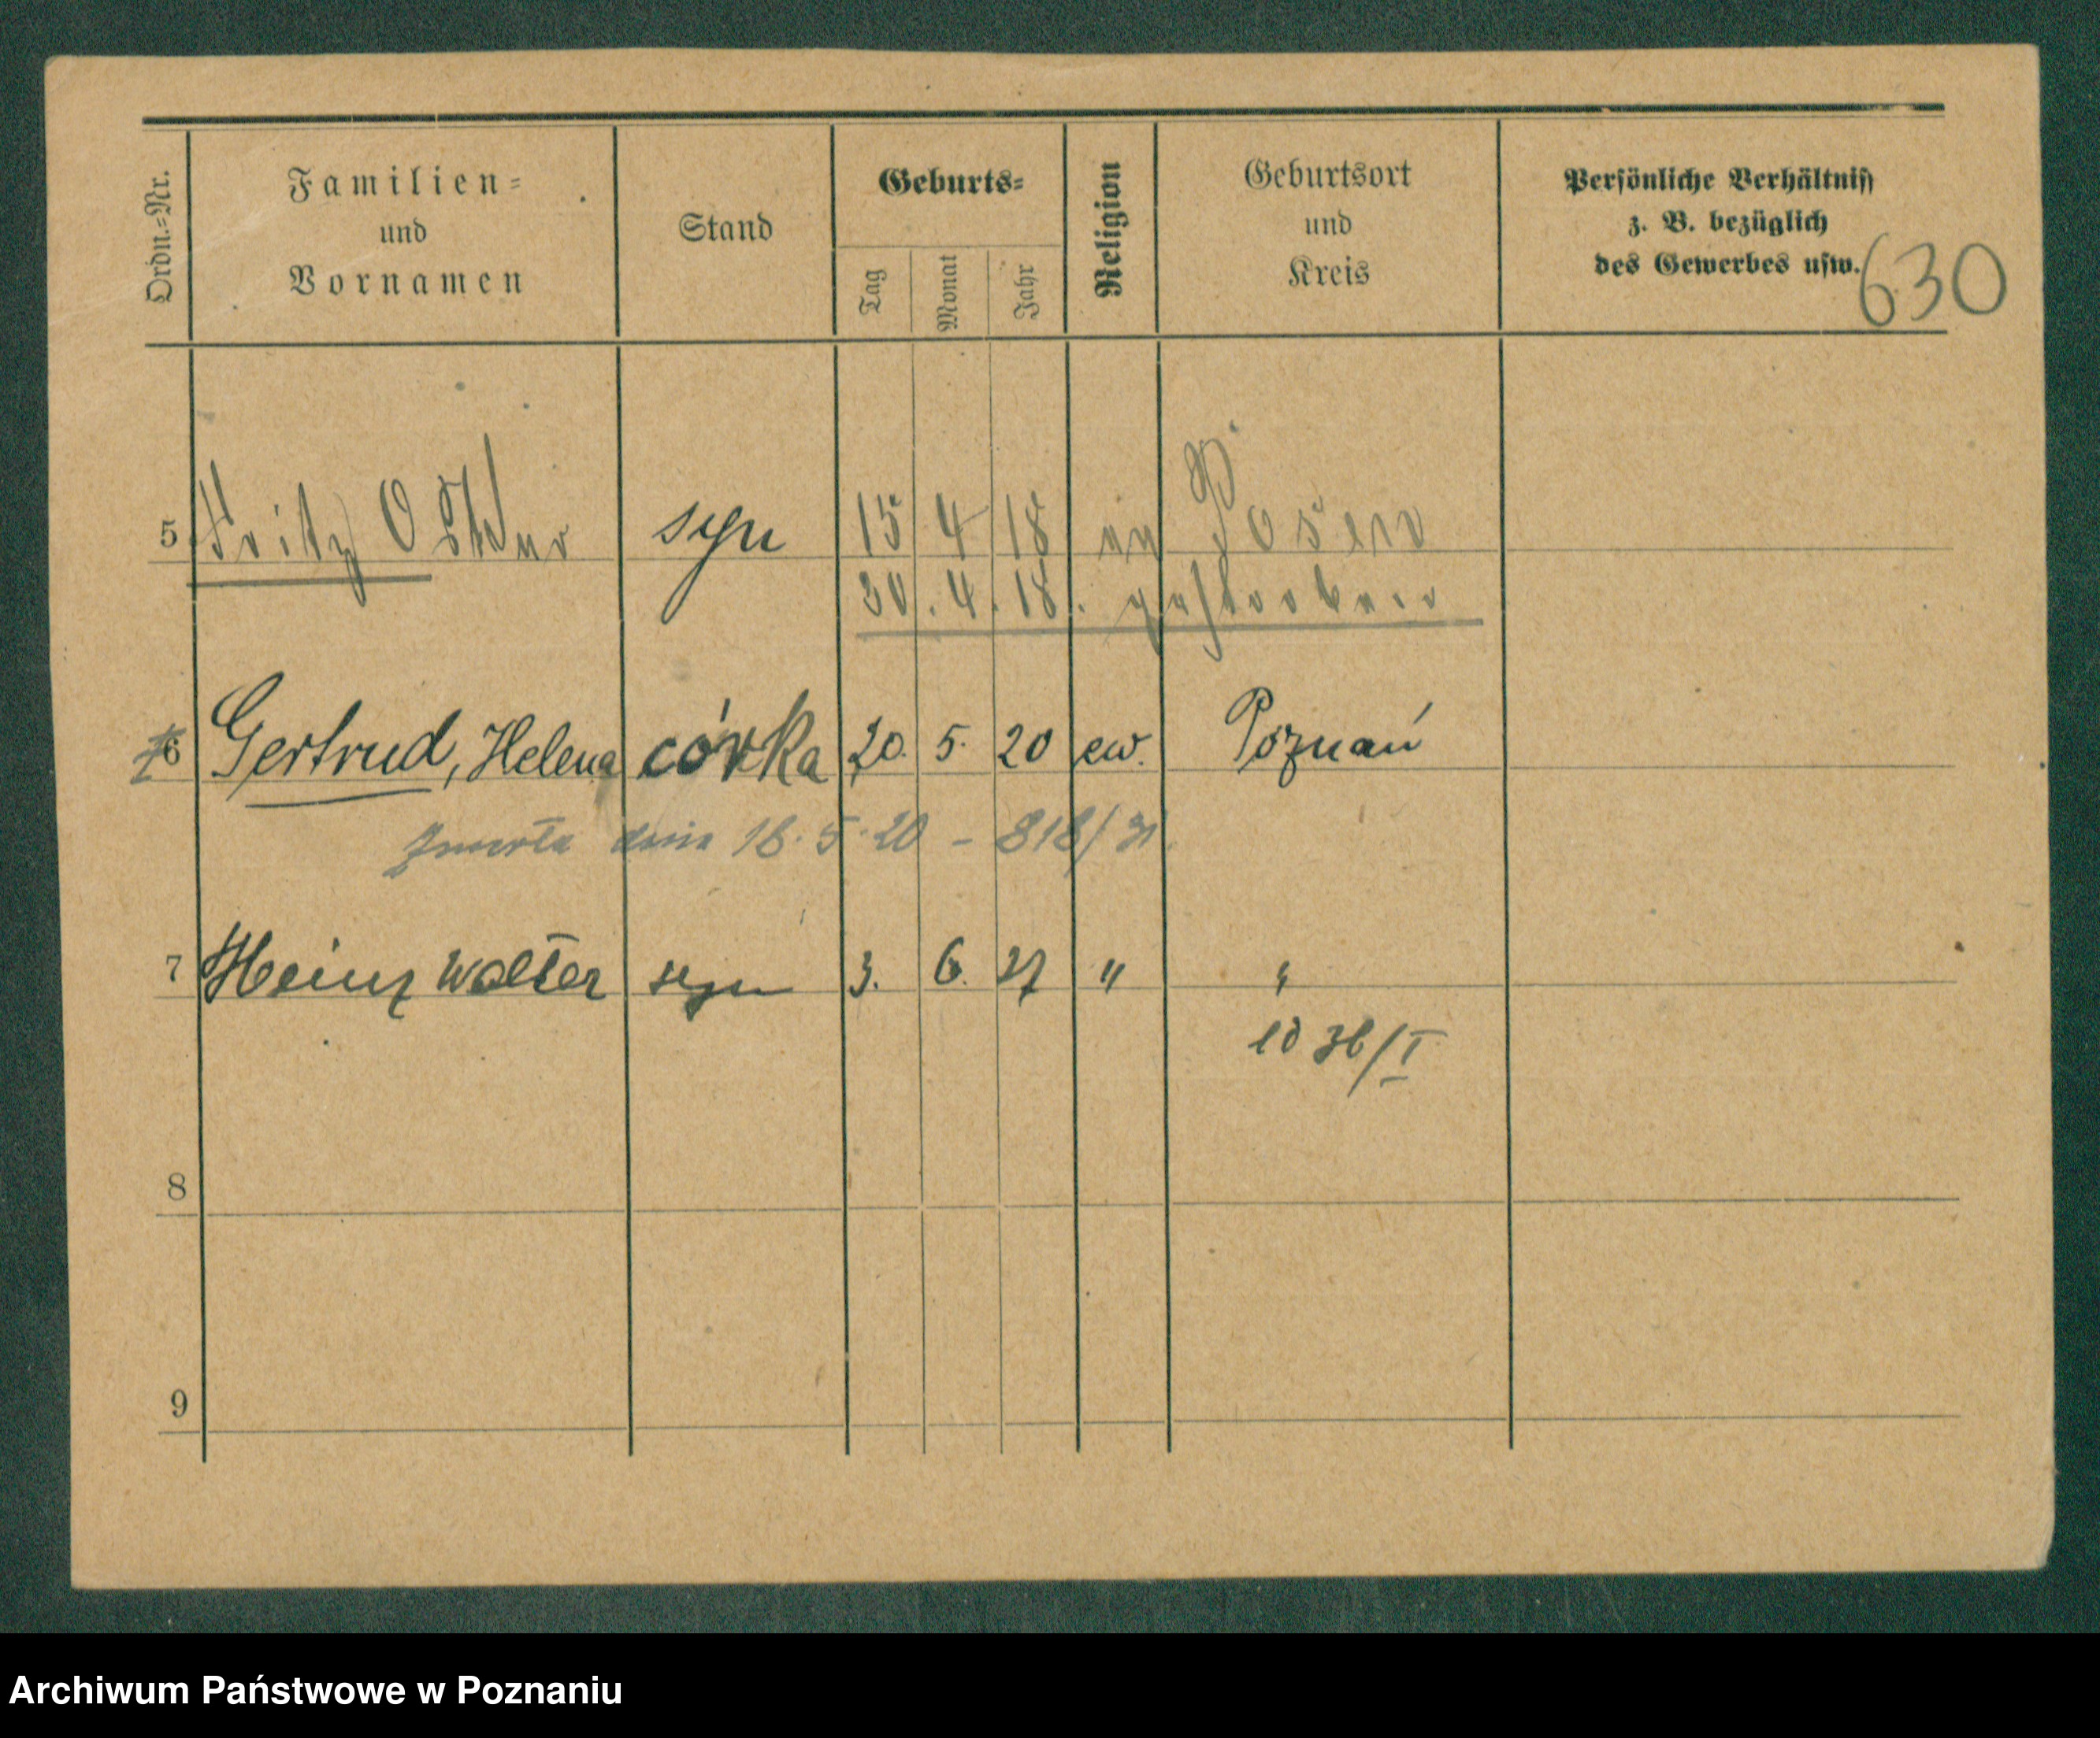 Ordn.-Nr.
Familien-
und
Vornamen
Stand
Geburts-
Tag
Monat
Jahr
Religion
Geburtsort
und
Kreis
Persönliche Verhältniss
z. B. bezüglich
des Gewerbes usw.
630
5 Fritz Oskar syn 15 4 18 ev Posen
30. 4. 18. gestorben
6 Gertrud, Helena córka 20. 5. 20 ew. Poznań
Zmarła dnia 18. 5. 20 - 818/
7 Heinz Walter syn 3. 6. 27 " "
36/I
8
9
Archiwum Państwowe w Poznaniu